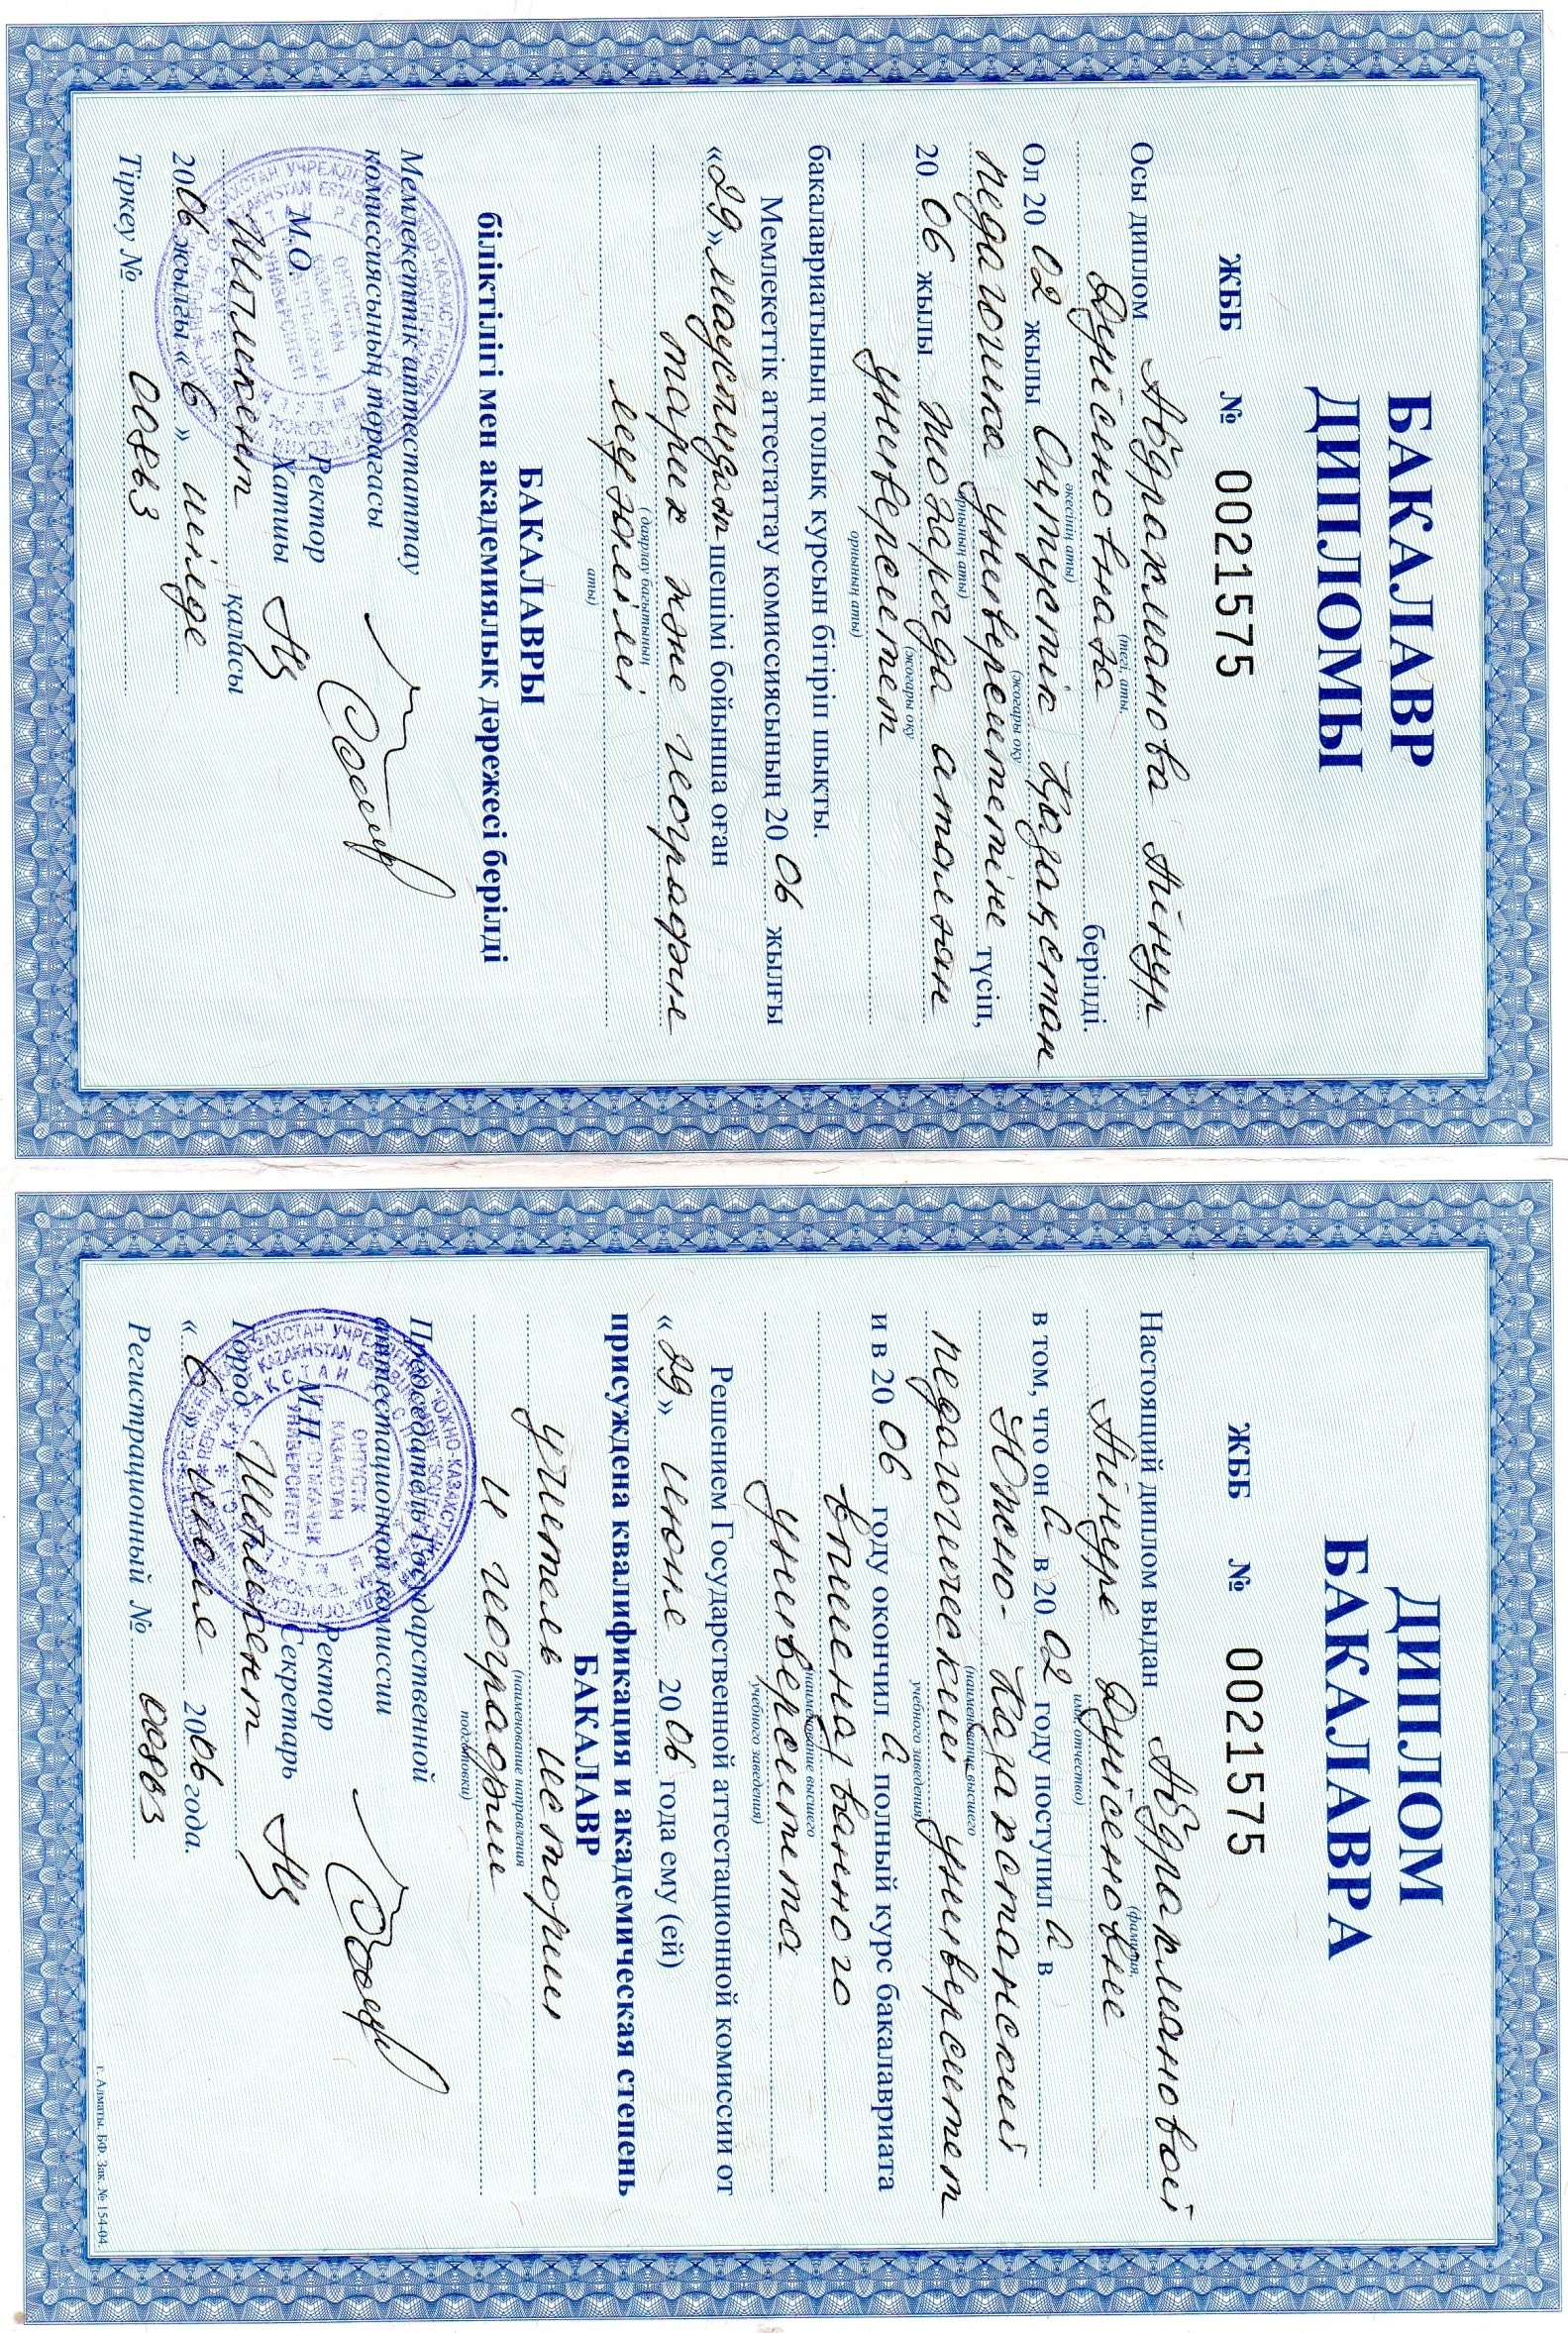 БАКАЛАВР
ДИПЛОМЫ
ЖББ № 0021575
Осы диплом Абдрахманова Айнур
(тегі, аты,
Дүйсеновнаға берілді.
әкесінің аты)
Ол 20 02 жылы Оңтүстік Қазақстан
(жоғары оқу
педагогика университетіне түсіп,
орнының аты)
20 06 жылы жоғарыда аталған
(жоғары оқу
университет
орнының аты)
бакалавриатының толық курсын бітіріп шықты.
Мемлекеттік аттестаттау комиссиясының 20 06 жылғы
«29» маусымдағы шешімі бойынша оған
тарих және география
(даярлау бағытының
мұғалімі
аты)
БАКАЛАВРЫ
біліктілігі мен академиялық дәрежесі берілді
Мемлекеттік аттестаттау
комиссиясының төрағасы
Ректор
М.О. Хатшы
Шымкент қаласы
2006 жылғы «6» шілде
Тіркеу № 00883
ДИПЛОМ
БАКАЛАВРА
ЖББ № 0021575
Настоящий диплом выдан Абдрахмановой
(фамилия,
Айнуре Дуйсеновне
имя, отчество)
в том, что он а в 20 02 году поступил а в
Южно-Казахстанский
(наименование высшего
педагогический университет
учебного заведения)
и в 20 06 году окончил а полный курс бакалавриата
вышеназванного
(наименование высшего
университета
учебного заведения)
Решением Государственной аттестационной комиссии от
«29» июня 2006 года ему (ей)
присуждена квалификация и академическая степень
БАКАЛАВР
учитель истории
(наименование направления
и географии
подготовки)
Председатель Государственной
аттестационной комиссии
Ректор
М.П. Секретарь
Город Шымкент
«6» июля 2006 года.
Регистрационный № 00883
г. Алматы. БФ. Зак. № 154-04.